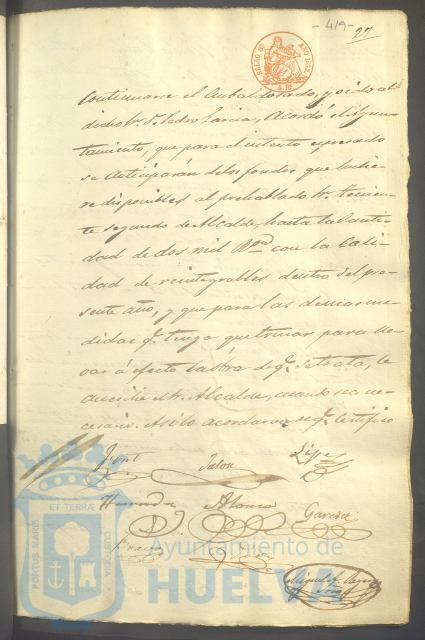 - 419 -
27
SELLO 4º AÑO 1862.
continuarse el Embaldosado, y oido al
dicho Sr. D. Pedro Garcia, Acordó el Ayun-
tamiento, que para el intento espresado
se anticiparán de los fondos que hubie-
re disponibles al prehablado Sr. tenien-
te segundo de Alcalde, hasta la Canti-
dad de dos mil Rs. con la Cali-
dad de reintegrables dentro del pre-
sente año, y que para las demas me-
didas q. tenga que tomar para lle-
var á efecto la Obra de q. se trata, le
ausilie el Sr. Alcalde, cuando sea ne-
cesario. Asi lo acordaron de q. Certifico
Lopez
Hernandez Alonso Garcia
Miguel
Ayuntamiento de
HUELVA
PORTUS MARIS ET TERRÆ CUSTODIA